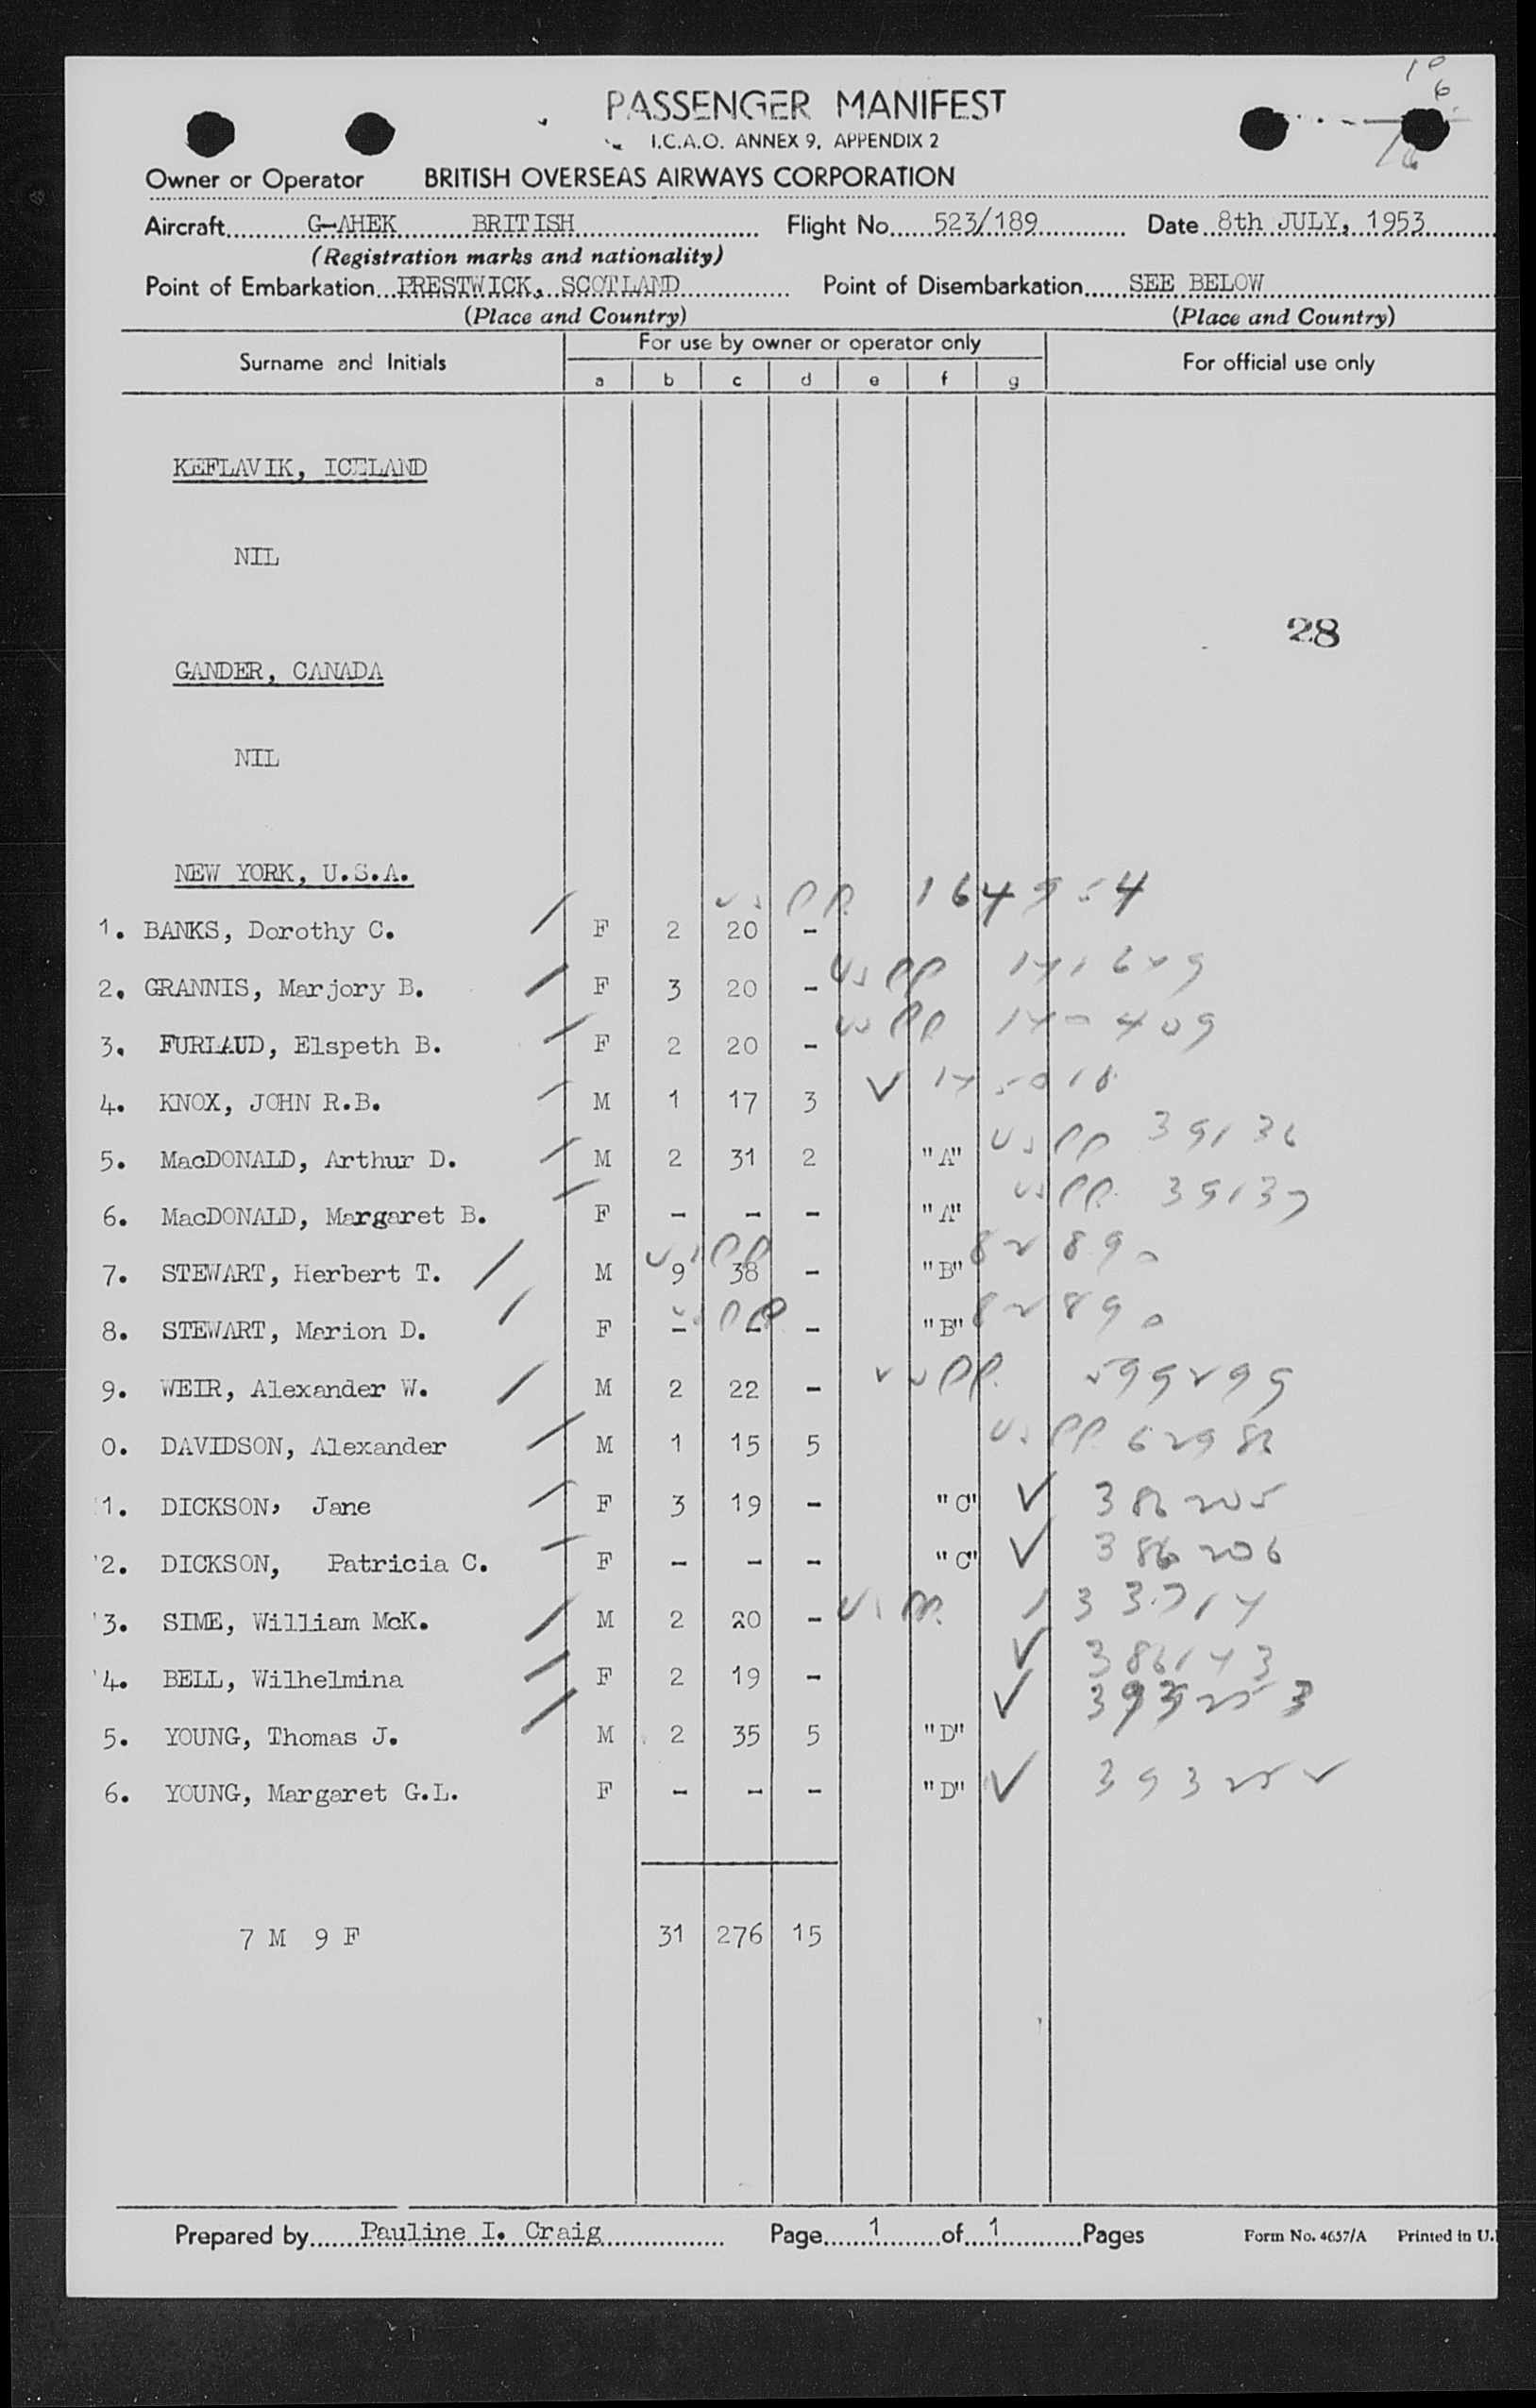 PASSENGER MANIFEST
I.C.A.O. ANNEX 9, APPENDIX 2
Owner or Operator BRITISH OVERSEAS AIRWAYS CORPORATION
Aircraft G-AHEK BRITISH Flight No. 523/189 Date 8th JULY, 1953
(Registration marks and nationality)
Point of Embarkation PRESTWICK, SCOTLAND Point of Disembarkation SEE BELOW
(Place and Country) (Place and Country)
Surname and Initials For use by owner or operator only For official use only
a b c d e f g
KEFLAVIK, ICELAND
NIL
28
GANDER, CANADA
NIL
NEW YORK, U.S.A.
1. BANKS, Dorothy C. F 2 20 -
2. GRANNIS, Marjory B. F 3 20 -
3. FURLAUD, Elspeth B. F 2 20 -
4. KNOX, JOHN R.B. M 1 17 3
5. MacDONALD, Arthur D. M 2 31 2 "A" 39136
6. MacDONALD, Margaret B. F - - - "A" 39137
7. STEWART, Herbert T. M 9 38 - "B" 82890
8. STEWART, Marion D. F - - - "B" 82890
9. WEIR, Alexander W. M 2 22 - 599299
0. DAVIDSON, Alexander M 1 15 5
1. DICKSON, Jane F 3 19 - "C" 386205
2. DICKSON, Patricia C. F - - - "C" 386206
3. SIME, William McK. M 2 20 - 133714
4. BELL, Wilhelmina F 2 19 - 386143
5. YOUNG, Thomas J. M 2 35 5 "D"
6. YOUNG, Margaret G.L. F - - - "D" 393252
7 M 9 F 31 276 15
Prepared by Pauline I. Craig Page 1 of 1 Pages Form No. 4657/A Printed in U.